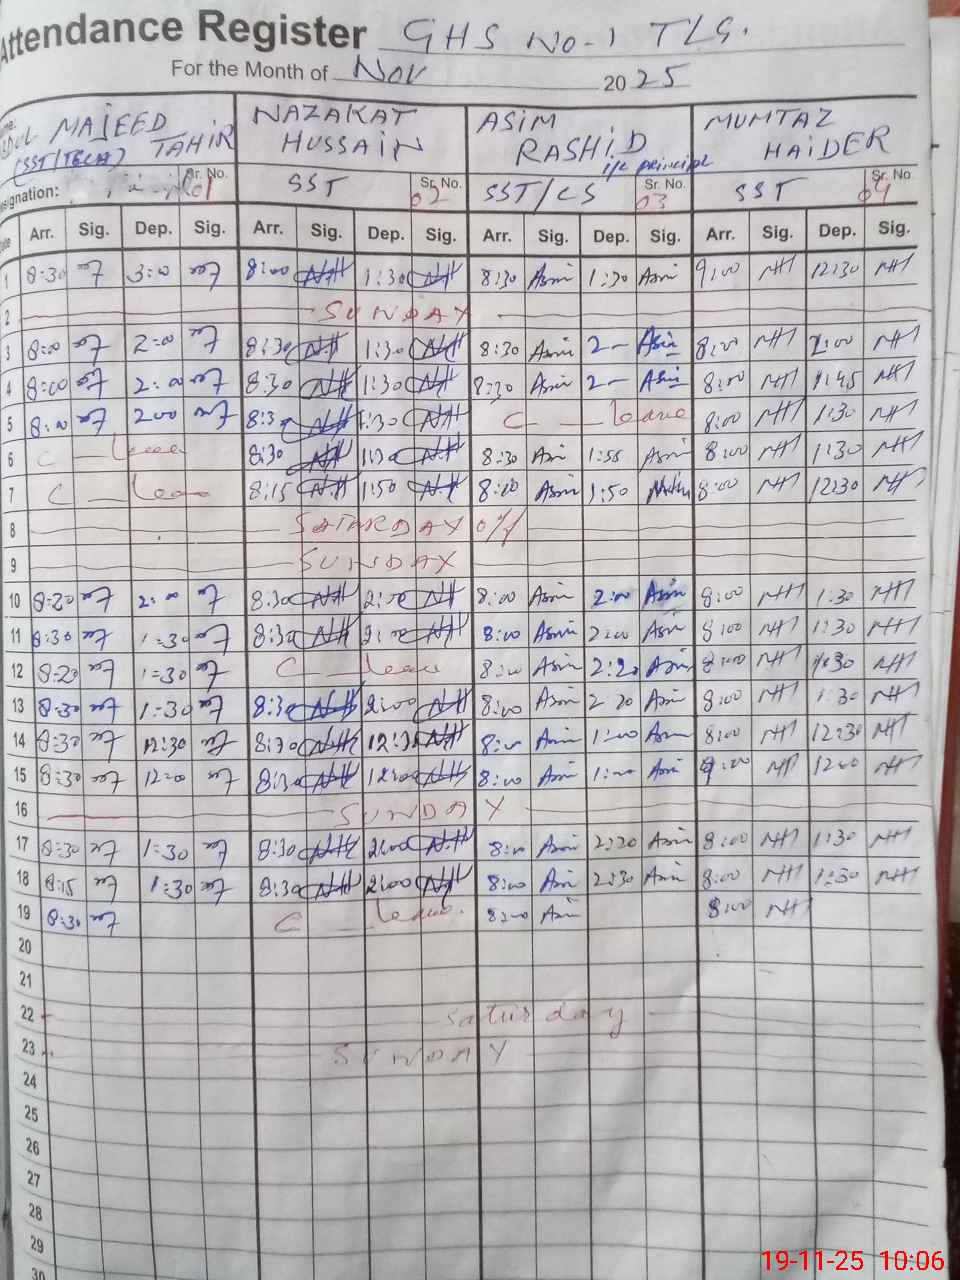 Attendance Register GHS No-1 TLG.
For the Month of Nov 2025
MAJEED TAHIR NAZAKAT HUSSAIN ASIM RASHID i/c principl MUMTAZ HAIDER
Designation: Sr. No. 01 SST Sr. No. 02 SST/CS Sr. No. 03 SST Sr. No. 04
Arr. Sig. Dep. Sig. Arr. Sig. Dep. Sig. Arr. Sig. Dep. Sig. Arr. Sig. Dep. Sig.
1 8:30 3:00 8:00 NH 1:30 NH 8:30 Asim 1:30 Asim 9:00 12:30
2 SUNDAY
3 8:00 2:00 8:30 NH 1:30 NH 8:30 Asim 2- Asim 8:00 2:00
4 8:00 2:00 8:30 NH 1:30 NH 8:30 Asim 2- Asim 8:00 1:45
5 8:00 200 8:30 NH 1:30 NH C leave 8:00 1:30
6 C leave 8:30 NH 1:30 NH 8:30 Asim 1:55 Asim 8:00 1:30
7 C leave 8:15 NH 1:50 NH 8:00 Asim 1:50 8:00 12:30
8 SATURDAY off
9 SUNDAY
10 8:20 2:00 8:30 NH 2:00 NH 8:00 Asim 2:00 Asim 8:00 1:30
11 8:30 1:30 8:30 NH 2:00 NH 8:00 Asim 2:00 Asim 8:00 1:30
12 8:20 1:30 C leave 8:00 Asim 2:20 Asim 8:00 1:30
13 8:30 1:30 8:30 NH 2:00 NH 8:00 Asim 2:20 Asim 8:00 1:30
14 8:30 12:30 8:30 NH 12:30 NH 8:00 Asim 1:00 Asim 8:00 12:30
15 8:30 12:00 8:30 NH 12:00 NH 8:00 Asim 1:00 Asim 9:00 1200
16 SUNDAY
17 8:30 1:30 8:30 NH 2:00 NH 8:00 Asim 2:20 Asim 8:00 1:30
18 8:15 1:30 8:30 NH 2:00 NH 8:00 Asim 2:30 Asim 8:00 1:30
19 8:30 C leave. 8:00 Asim 8:00
20
21
22 Saturday
23 SUNDAY
24
25
26
27
28
29
30
19-11-25 10:06